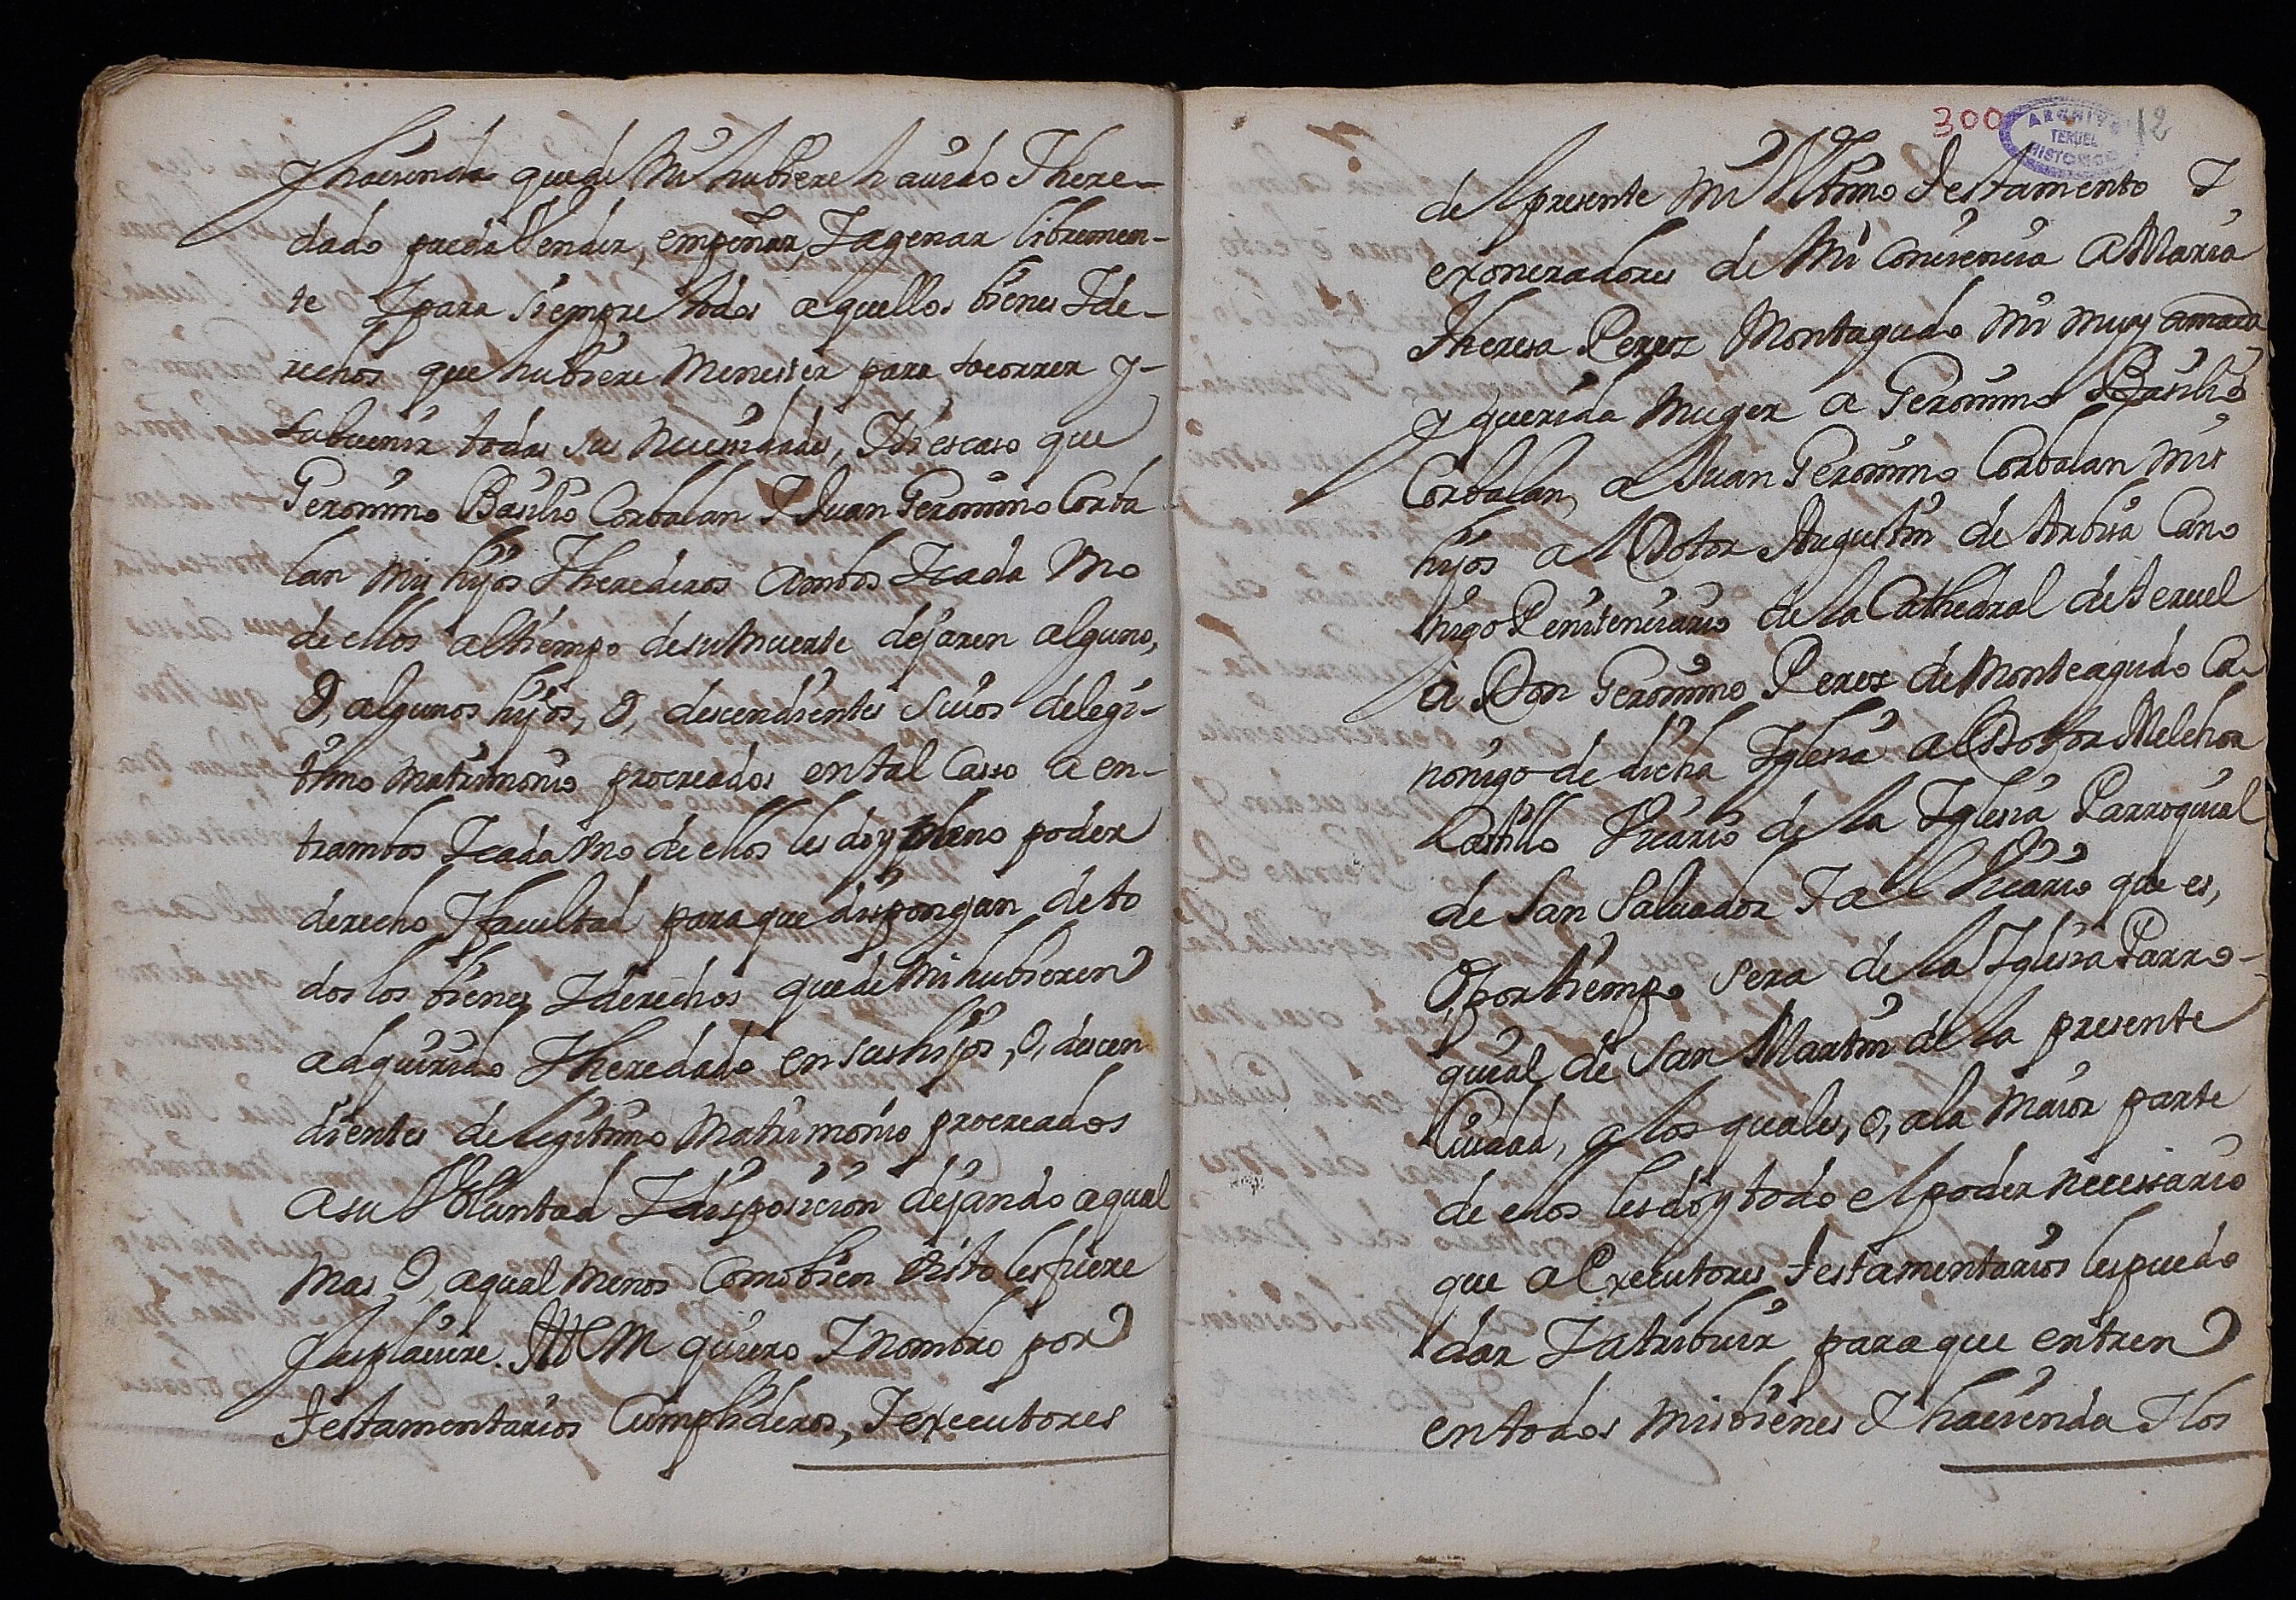 y hacienda que de mi hubiere hauido Y here-
dado pueda Vender, empeñar, Y agenar libremen-
te Y para siempre todos aquellos bienes Y de-
rechos que hubiere menester para socorrer y-
subuenir todas sus necesidades, Y si es caso que
Geronimo Basilio Corbalan Y Juan Geronimo Corba
lan mis hijos Y herederos ambos Y cada Vno
de ellos al tiempo de su muerte dejaren alguno,
O, algunos hijos, O, descendientes suios de legi-
timo matrimonio procreados en tal Casso a en-
trambos Y cada Vno de ellos les doy pleno poder
derecho Y facultad para que dispongan de to
dos los bienes Y derechos que de mi hubieren
adquirido Y heredado en sus hijos, O, descen
dientes de legitimo Matrimonio procreados
a su Voluntad Y disposicion dejando a qual
mas, O, a qual menos Como bien Visto les fuere
y les placiere. ITEM quiero Y nombro por
Testamentarios Cumplideros, Y executores
300
ARCHIVO
TERUEL
HISTORICO
12
del presente mi Vltimo Testamento Y
exoneradores de mi Conciencia a Maria
Theresa Perez Montagudo mi muy amada
y querida muger a Geronimo Basilio
Corbalan, a Juan Geronimo Corbalan mis
hijos al Dotor Augustin de Arbisa Cano
nigo Penitenciario de la Cathedral de teruel
a Don Geronimo Perez de Monteagudo Ca-
nonigo de dicha Iglesia al Dotor Melchor
Castillo Vicario de la Iglesia Parroquial
de San Saluador Y al Vicario que es,
O por tiempo sera de la Iglesia Parro-
quial de San Martin de la presente
Ciudad, a los quales, O, a la maior parte
de ellos les doy todo el poder necessario
que a Executores testamentarios les puedo
dar Y atribuir para que entren
en todos mis bienes Y hacienda Y los